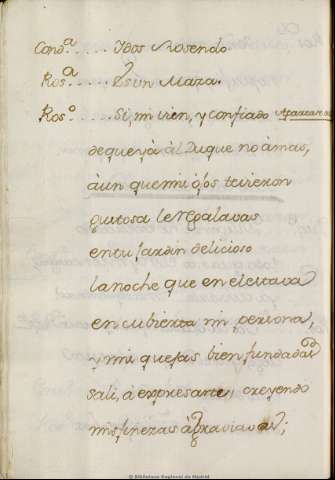 Cond.ª ..... Idos Rosendo
Ros.ª ..... Es un Maza.
Ros.º ..... Si, mi vien, y confiado Aparear
de que yà àl Duque no àmas,
àun que mis ojos te vieron
gustosa le regalavas
en tu Jardin delicioso
la noche que en el estava
encubierta mi persona,
y mis quejas bien fundadas
sali, à expresarte, creyendo
mis finezas àgraviadas;
© Biblioteca Regional de Madrid